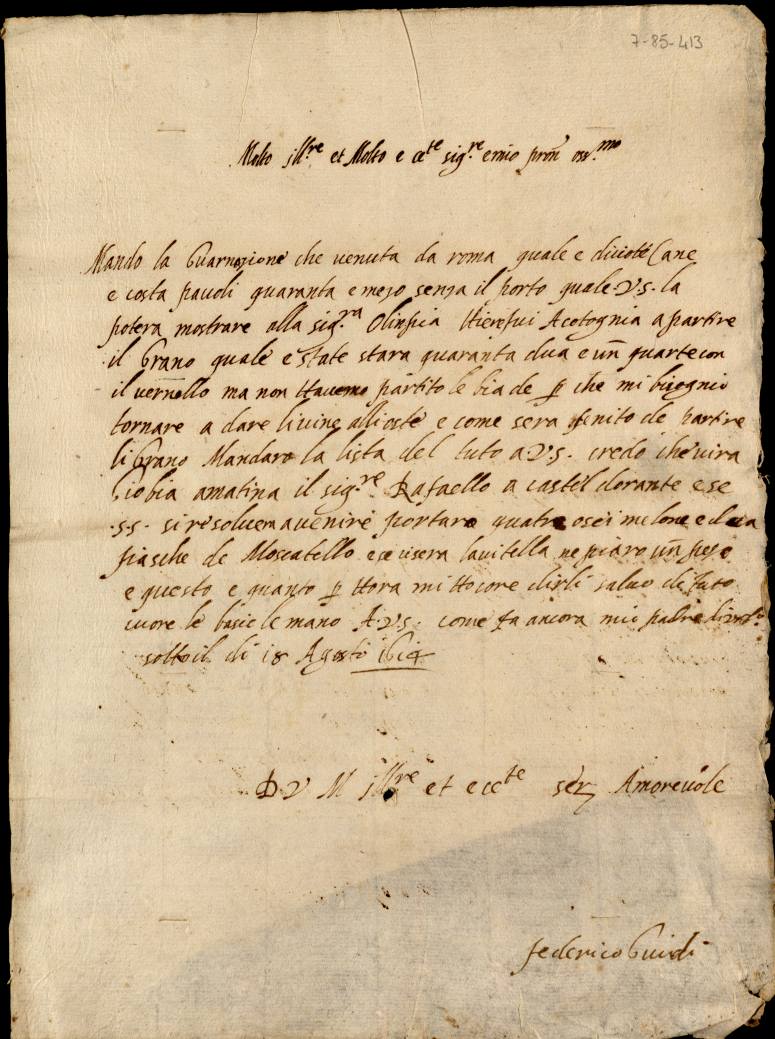 7-85-413
Molto Ill.re et Molto ecc.te sig.re e mio pron oss.mo
Mando la Guarnizione che venuta da roma quale e diciotto Cane
e costa pauoli quaranta e mezo senza il porto quale V.S. la
potera mostrare alla sig.ra Olinpia Hierfui A cotognia a partire
il Grano quale e state stara quaranta dua e un quarte con
il vernello ma non Havemo partito le biade p che mi bisognio
tornare a dare li vine alli oste e come sera finito de partire
li Grano Mandaro la lista del tuto a V.S. credo che vira
Giobia amatina il sig.re Rafaello a castel dorante e se
.S.S. si resoluem a venire portaro quatro o sei melone e dua
fiasche de Moscatello e se ci sera la vitella ne piaro un peso
e questo e quanto p Hora mi Hocore dirli salvo di tuto
cuore le basic le mano A V.S. come fa ancora mio padre di
sotto il di 18 Agosto 1614
D V M Ill.re et ecc.te ser Amorevole
federico Guidi